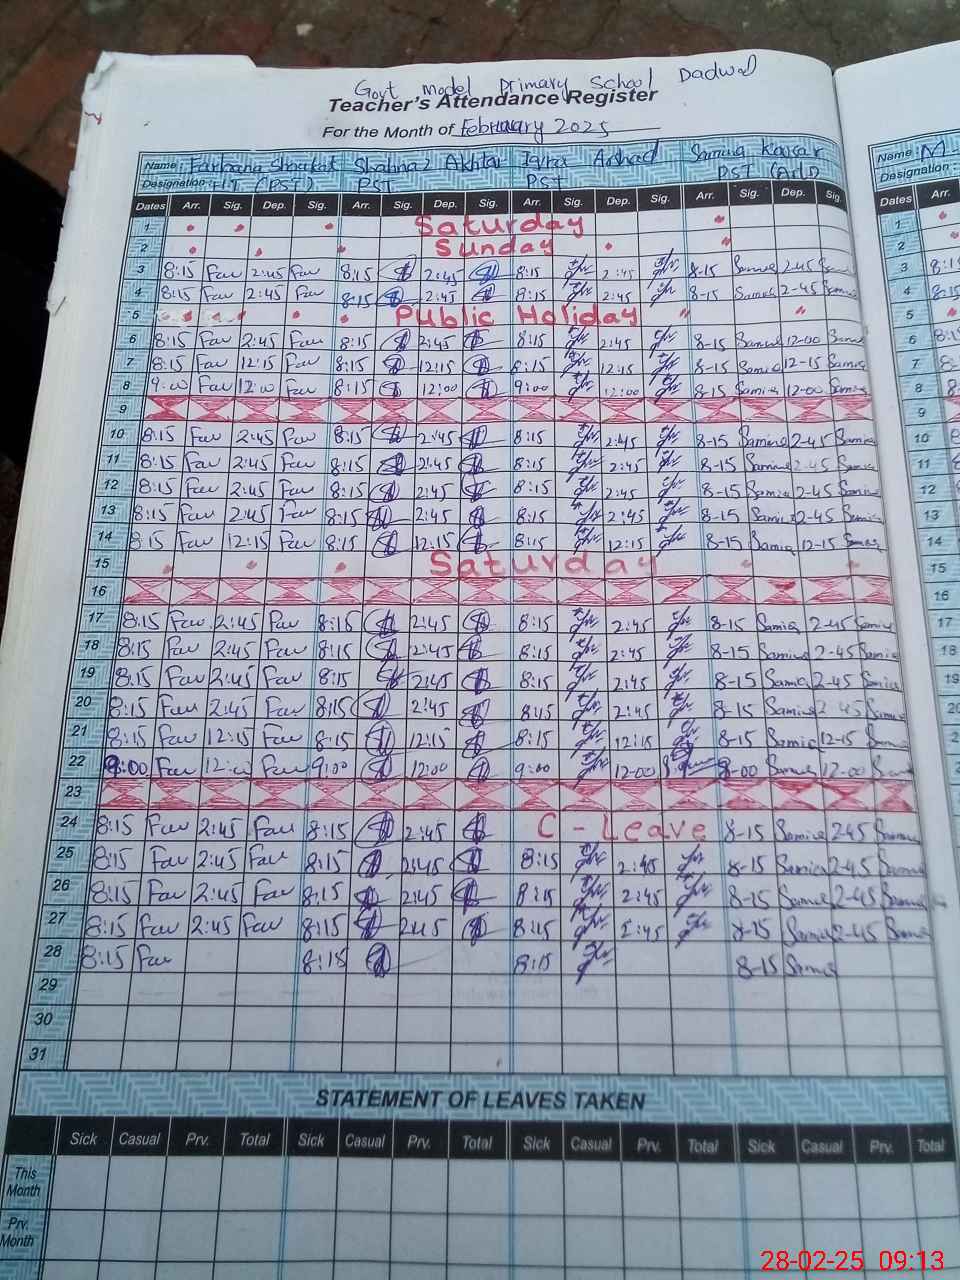 Govt Model Primary School Dadwal
Teacher's Attendance Register
For the Month of February 2025
Name: Farhana Shaukat Shahnaz Akhtar Iqra Arshad Samia Kausar Name: M
Designation: H.T (PST) PST PST PST (Art) Designation:
Dates Arr. Sig. Dep. Sig. Arr. Sig. Dep. Sig. Arr. Sig. Dep. Sig. Arr. Sig. Dep. Sig. Dates Arr.
1 Saturday 1
2 Sunday 2
3 8:15 Far 2:45 Far 8:15 2:45 8:15 2:45 8-15 Samia 2-45 Samia 3
4 8:15 Far 2:45 Far 8:15 2:45 8:15 2:45 8-15 Samia 2-45 Samia 4
5 Public Holiday 5
6 8:15 Far 2:45 Far 8:15 2:45 8:15 2:45 8-15 Samia 12-00 Samia 6
7 8:15 Far 12:15 Far 8:15 12:15 8:15 12:15 8-15 Samia 12-15 Samia 7
8 9:00 Far 12:00 Far 8:15 12:00 9:00 12:00 8-15 Samia 12-00 Samia 8
9 9
10 8:15 Far 2:45 Far 8:15 2:45 8:15 2:45 8-15 Samia 2-45 Samia 10
11 8:15 Far 2:45 Far 8:15 2:45 8:15 2:45 8-15 Samia 2-45 Samia 11
12 8:15 Far 2:45 Far 8:15 2:45 8:15 2:45 8-15 Samia 2-45 Samia 12
13 8:15 Far 2:45 Far 8:15 2:45 8:15 2:45 8-15 Samia 2-45 Samia 13
14 8:15 Far 12:15 Far 8:15 12:15 8:15 12:15 8-15 Samia 12-15 Samia 14
15 Saturday 15
16 16
17 8:15 Far 2:45 Far 8:15 2:45 8:15 2:45 8-15 Samia 2-45 Samia 17
18 8:15 Far 2:45 Far 8:15 2:45 8:15 2:45 8-15 Samia 2-45 Samia 18
19 8:15 Far 2:45 Far 8:15 2:45 8:15 2:45 8-15 Samia 2-45 Samia 19
20 8:15 Far 2:45 Far 8:15 2:45 8:15 2:45 8-15 Samia 2-45 Samia
21 8:15 Far 12:15 Far 8:15 12:15 8:15 12:15 8-15 Samia 12-15 Samia
22 9:00 Far 12:00 Far 9:00 12:00 9:00 12-00 8-00 Samia 12-00
23
24 8:15 Far 2:45 Far 8:15 2:45 C-Leave 8-15 Samia 2-45 Samia
25 8:15 Far 2:45 Far 8:15 2:45 8:15 2:45 8-15 Samia 2-45 Samia
26 8:15 Far 2:45 Far 8:15 2:45 8:15 2:45 8-15 Samia 2-45 Samia
27 8:15 Far 2:45 Far 8:15 2:45 8:15 2:45 8-15 Samia 2-45 Samia
28 8:15 Far 8:15 8:15 8-15 Samia
29
30
31
STATEMENT OF LEAVES TAKEN
Sick Casual Prv. Total Sick Casual Prv. Total Sick Casual Prv. Total Sick Casual Prv. Total
This
Month
Prv.
Month
28-02-25 09:13